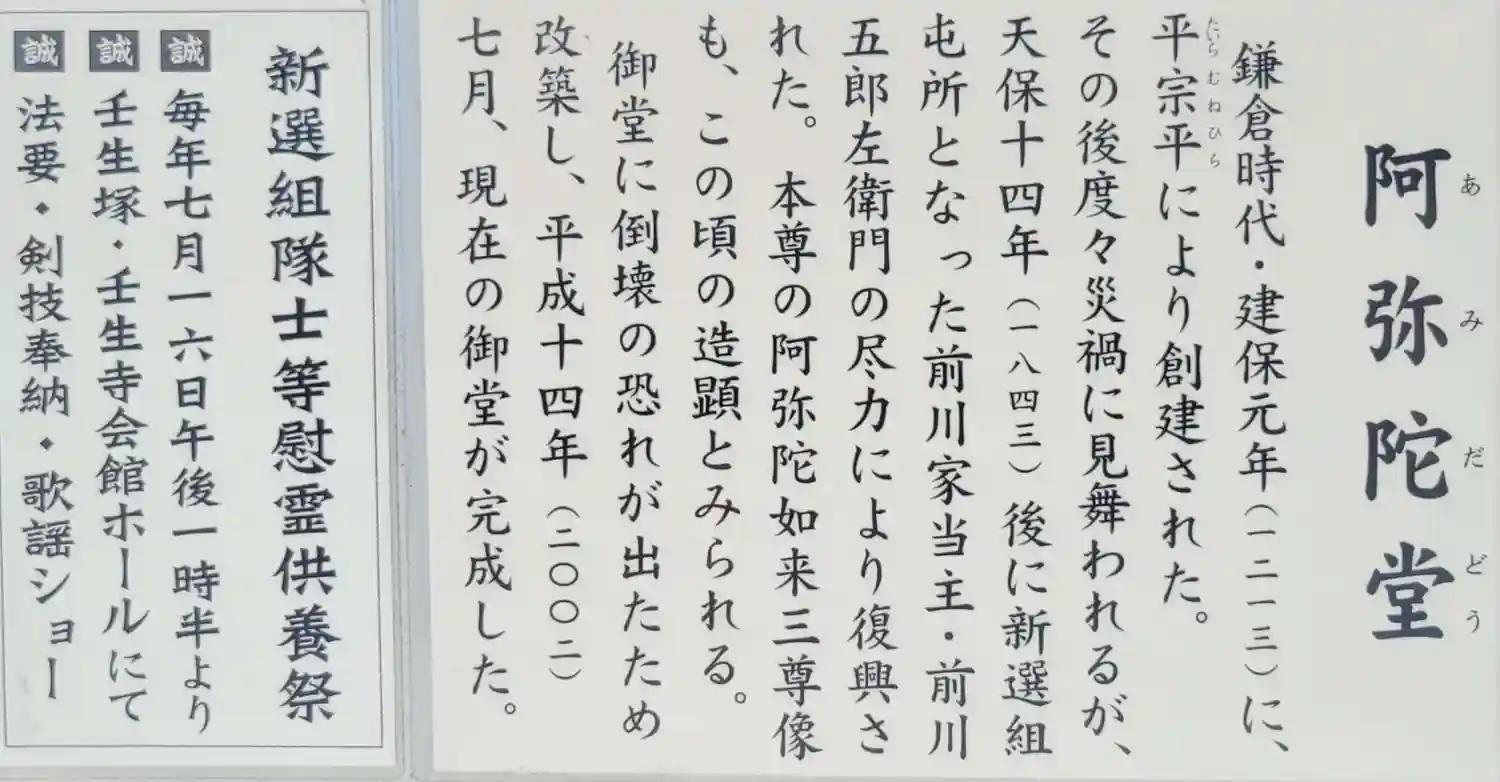 阿弥陀堂
あみだどう
鎌倉時代・建保元年（一二一三）に、
平宗平により創建された。
たいらむねひら
その後度々災禍に見舞われるが、
天保十四年（一八四三）後に新選組
屯所となった前川家当主・前川
五郎左衛門の尽力により復興さ
れた。本尊の阿弥陀如来三尊像
も、この頃の造顕とみられる。
御堂に倒壊の恐れが出たため
改築し、平成十四年（二〇〇二）
七月、現在の御堂が完成した。
新選組隊士等慰霊供養祭
誠 毎年七月一六日午後一時半より
誠 壬生塚・壬生寺会館ホールにて
誠 法要・剣技奉納・歌謡ショー